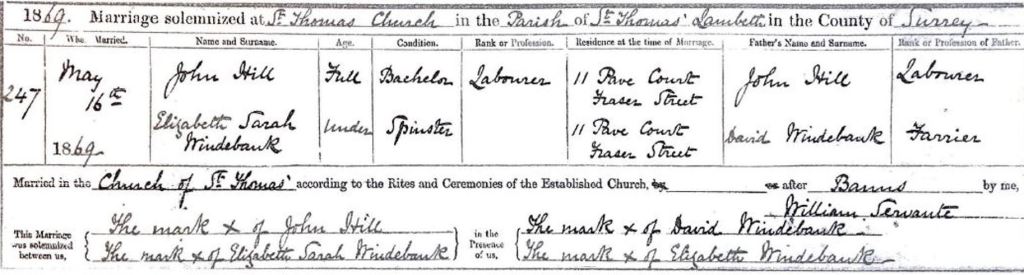 1869. Marriage solemnized at St Thomas Church in the Parish of St Thomas' Lambeth in the County of Surrey
No. When Married. Name and Surname. Age. Condition. Rank or Profession. Residence at the time of Marriage. Father's Name and Surname. Rank or Profession of Father.
247 May 16th 1869. John Hill Full Bachelor Labourer 11 Pave Court Fraser Street John Hill Labourer
Elizabeth Sarah Windebank Under Spinster 11 Pave Court Fraser Street David Windebank Farrier
Married in the Church of St Thomas' according to the Rites and Ceremonies of the Established Church, by or after Banns by me,
William Servante
This Marriage was solemnized between us,
The mark x of John Hill
The mark x of Elizabeth Sarah Windebank
in the Presence of us,
The mark x of David Windebank
The mark x of Elizabeth Windebank